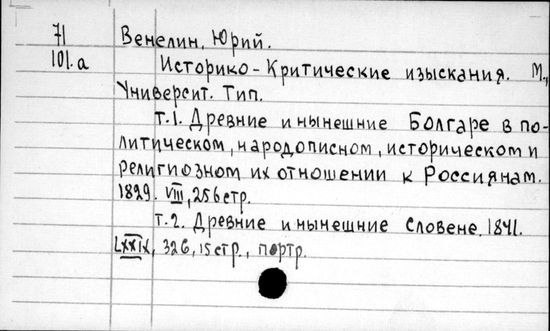 71 Венелин, Юрий.
101.а Историко-Критические изыскания. М.,
Университ. Тип.
Т.1. Древние и нынешние Болгаре в по-
литическом, народописном, историческом и
религиозном их отношении к Россиянам.
1829. VIII, 256 стр.
Т.2. Древние и нынешние Словене. 1841.
LXXIX, 326, 15 стр., портр.